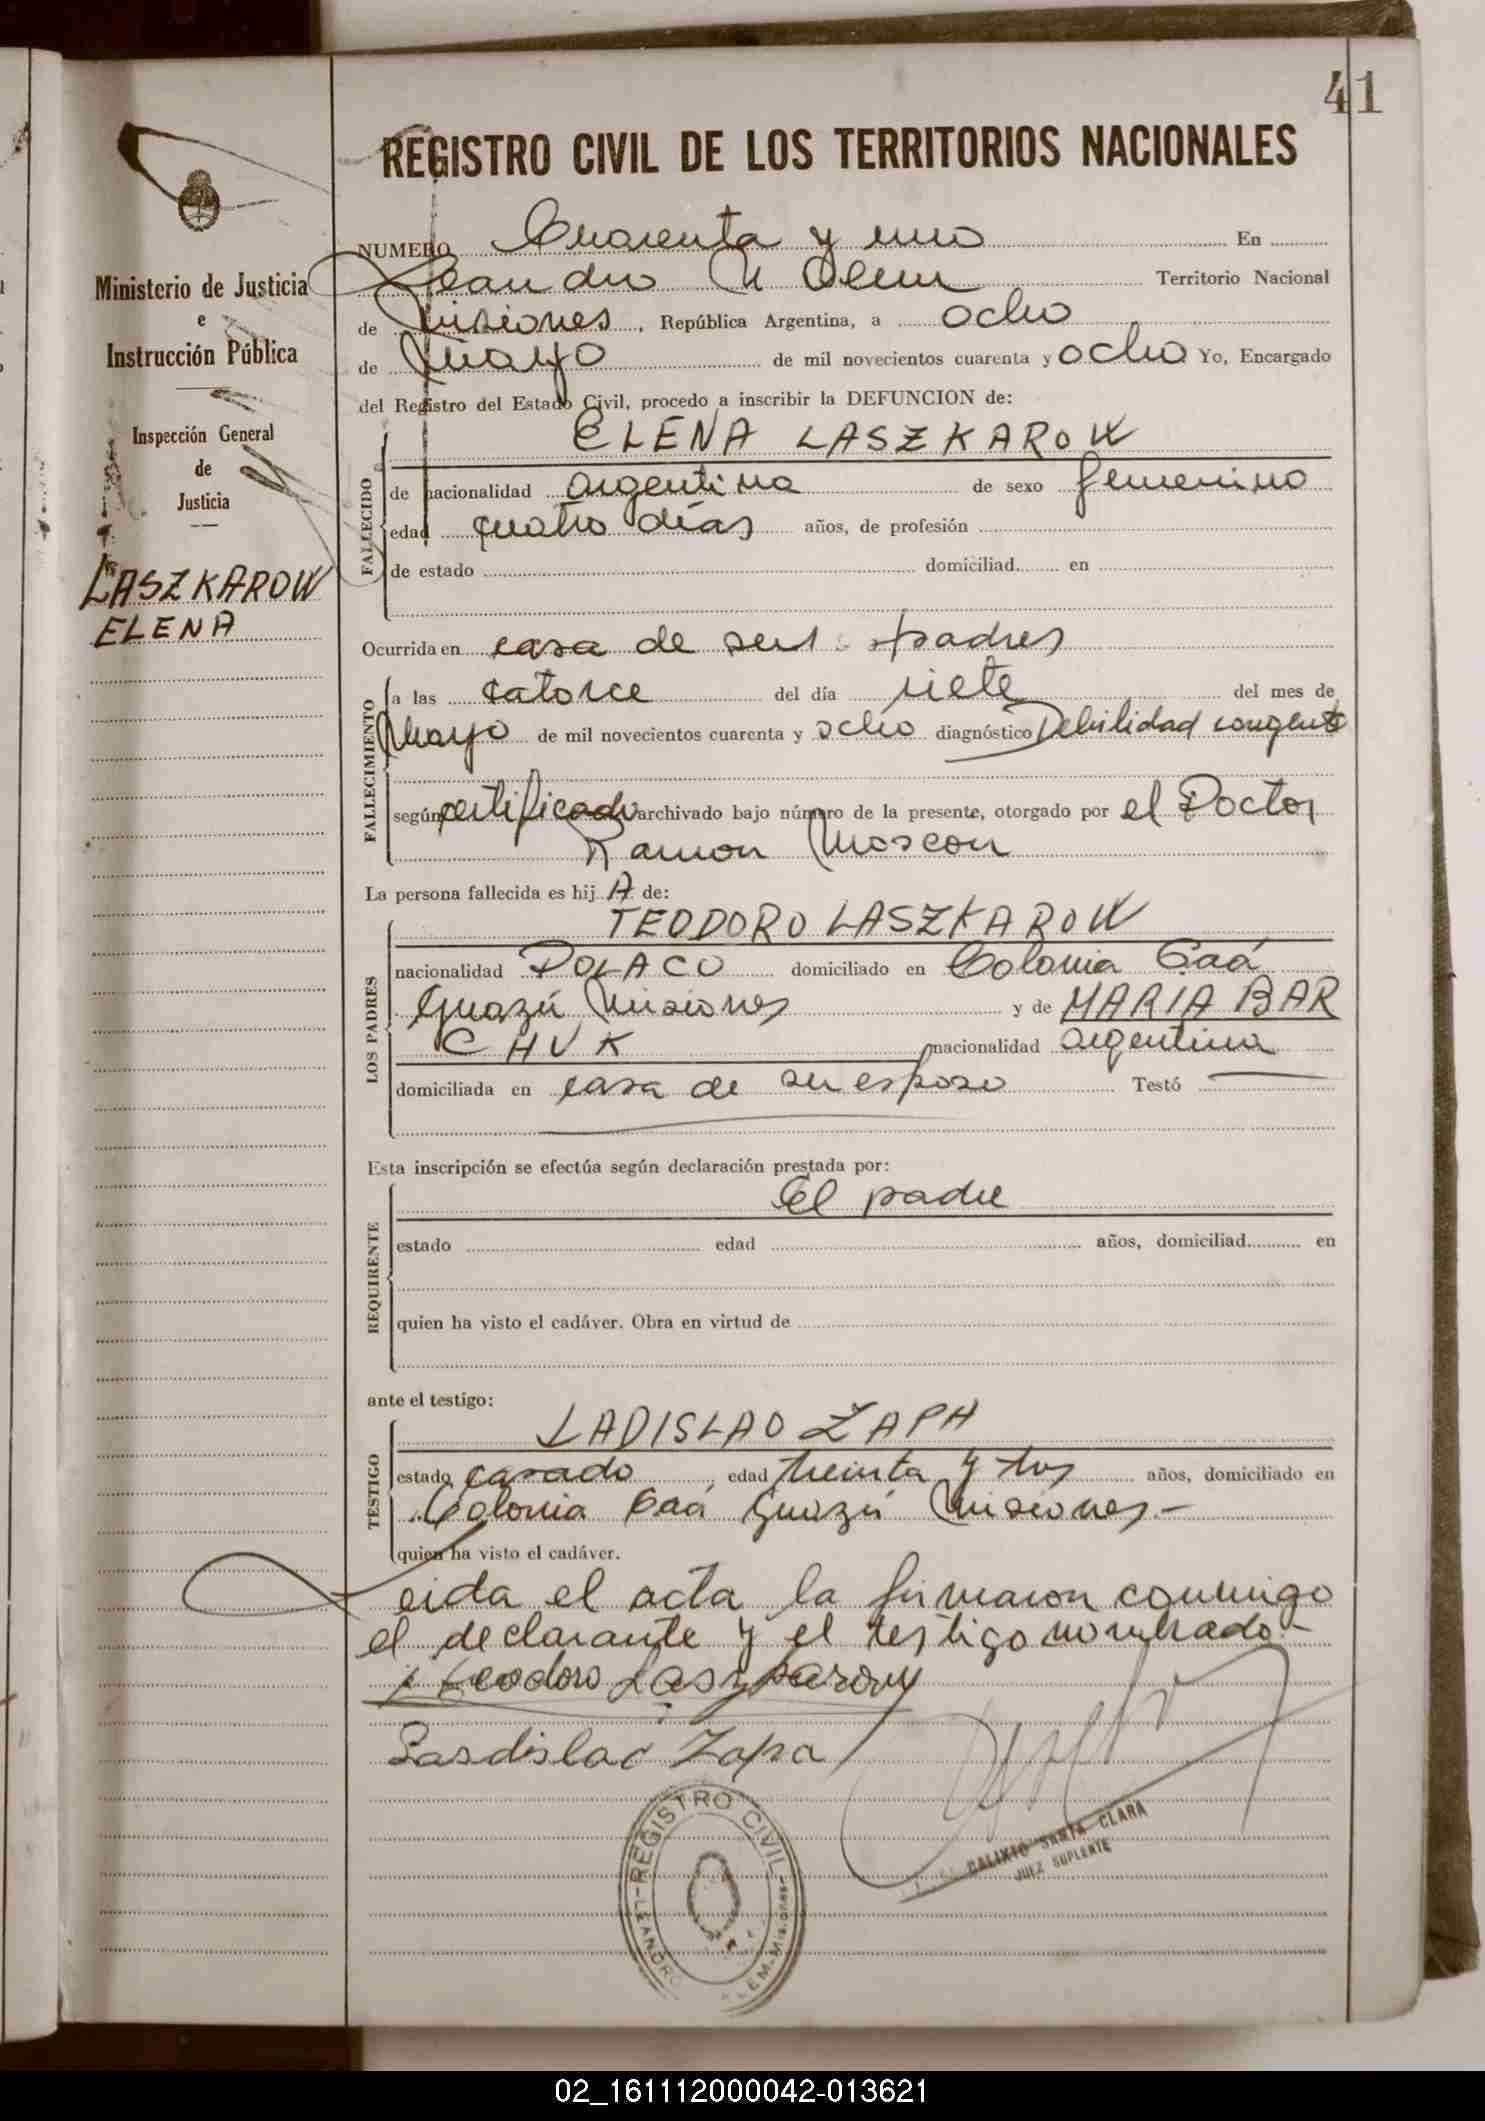 41
REGISTRO CIVIL DE LOS TERRITORIOS NACIONALES
Ministerio de Justicia
e
Instrucción Pública
Inspección General
de
Justicia
LASZKAROW
ELENA
NUMERO Cuarenta y uno En
Leandro N Alem Territorio Nacional
de Misiones, República Argentina, a ocho
de Mayo de mil novecientos cuarenta y ocho Yo, Encargado
del Registro del Estado Civil, procedo a inscribir la DEFUNCION de:
FALLECIDO
ELENA LASZKAROW
de nacionalidad argentina de sexo femenino
edad cuatro días años, de profesión
de estado domiciliad en
Ocurrida en casa de sus padres
FALLECIMIENTO
a las catorce del día siete del mes de
Mayo de mil novecientos cuarenta y ocho diagnóstico Debilidad congenita
según certificado archivado bajo número de la presente, otorgado por el Doctor
Ramon Moscon
La persona fallecida es hij A de:
LOS PADRES
TEODORO LASZKAROW
nacionalidad POLACO domiciliado en Colonia Caá
Guazú Misiones y de MARIA BAR
CHUK nacionalidad argentina
domiciliada en casa de su esposo Testó
Esta inscripción se efectúa según declaración prestada por:
REQUIRENTE
El padre
estado edad años, domiciliad en
quien ha visto el cadáver. Obra en virtud de
ante el testigo:
TESTIGO
LADISLAO ZAPA
estado casado, edad treinta y tres años, domiciliado en
Colonia Caá Guazú Misiones.-
quien ha visto el cadáver.
Leida el acta la firmaron conmigo
el declarante y el testigo nombrado.-
Teodoro Laszkarow
Lasdislao Zapa
REGISTRO CIVIL
LEANDRO ALEM-MISIONES
CALIXTO SANTA CLARA
JUEZ SUPLENTE
02_161112000042-013621